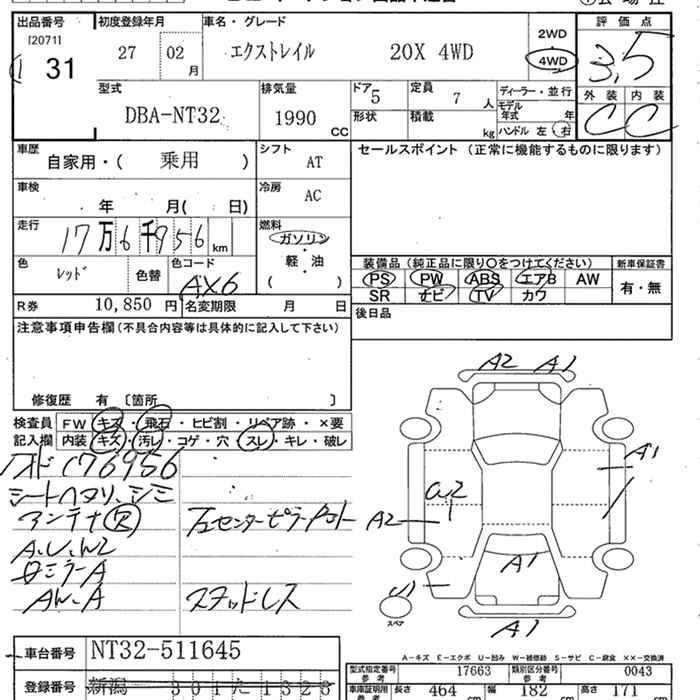 出品番号 初度登録年月 車名・グレード 評価点
[2071]
31 27 02 月 エクストレイル 20X 4WD 2WD 4WD 3.5
外装 内装
C C
型式 排気量 ドア 定員 ディーラー・並行
DBA-NT32 1990 CC 5 7 人 モデル年式 年
形状 積載 kg ハンドル 左・右
車歴 シフト セールスポイント (正常に機能するものに限ります)
自家用・( 乗用 ) AT
車検 冷房
年 月( 日) AC
走行 燃料
17万6千956 km ガソリン・軽・油
( )
色 色コード 装備品 (純正品に限り〇をつけてください) 新車保証書
レッド 色替 AX6 PS PW ABS エアB AW 有・無
SR ナビ TV カワ
R券 10,850 円 名変期限 月 日 後日品
注意事項申告欄(不具合内容等は具体的に記入して下さい)
修復歴 有 〔箇所 〕
検査員 FW キズ・飛石・ヒビ割・リペア跡・×要
記入欄 内装 キズ・汚レ・コゲ・穴・スレ・キレ・破レ
176956
シートヘタリ、シミ
アンテナ欠
A.U.W2
ミラーA
AW.A スタッドレス
A2 A1
A1
A2
A1
スペア
A1
A-キズ E-エクボ U-凹み W-補修跡 S-サビ C-腐食 ××-交換済
車台番号 NT32-511645
型式指定番号 参考 17663 類別区分番号 参考 0043
登録番号 新潟 301た1328
車庫証明用 参考 長さ 464 cm 幅 182 cm 高さ 171 cm